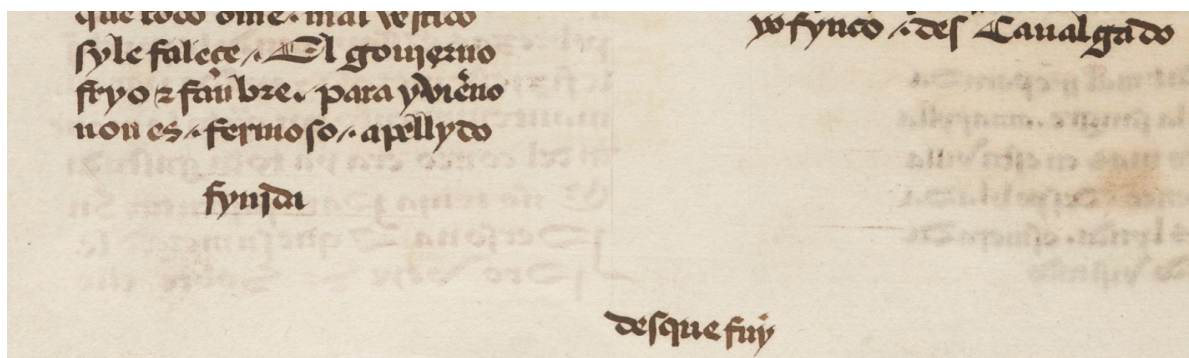 que todo ome mal vestido
syle falece /. El gouierno
fryo & fanbre. para yvierno
non es /. fermoso /. apellydo
fynida
yo fynco /. des Caualgado
desque fuy